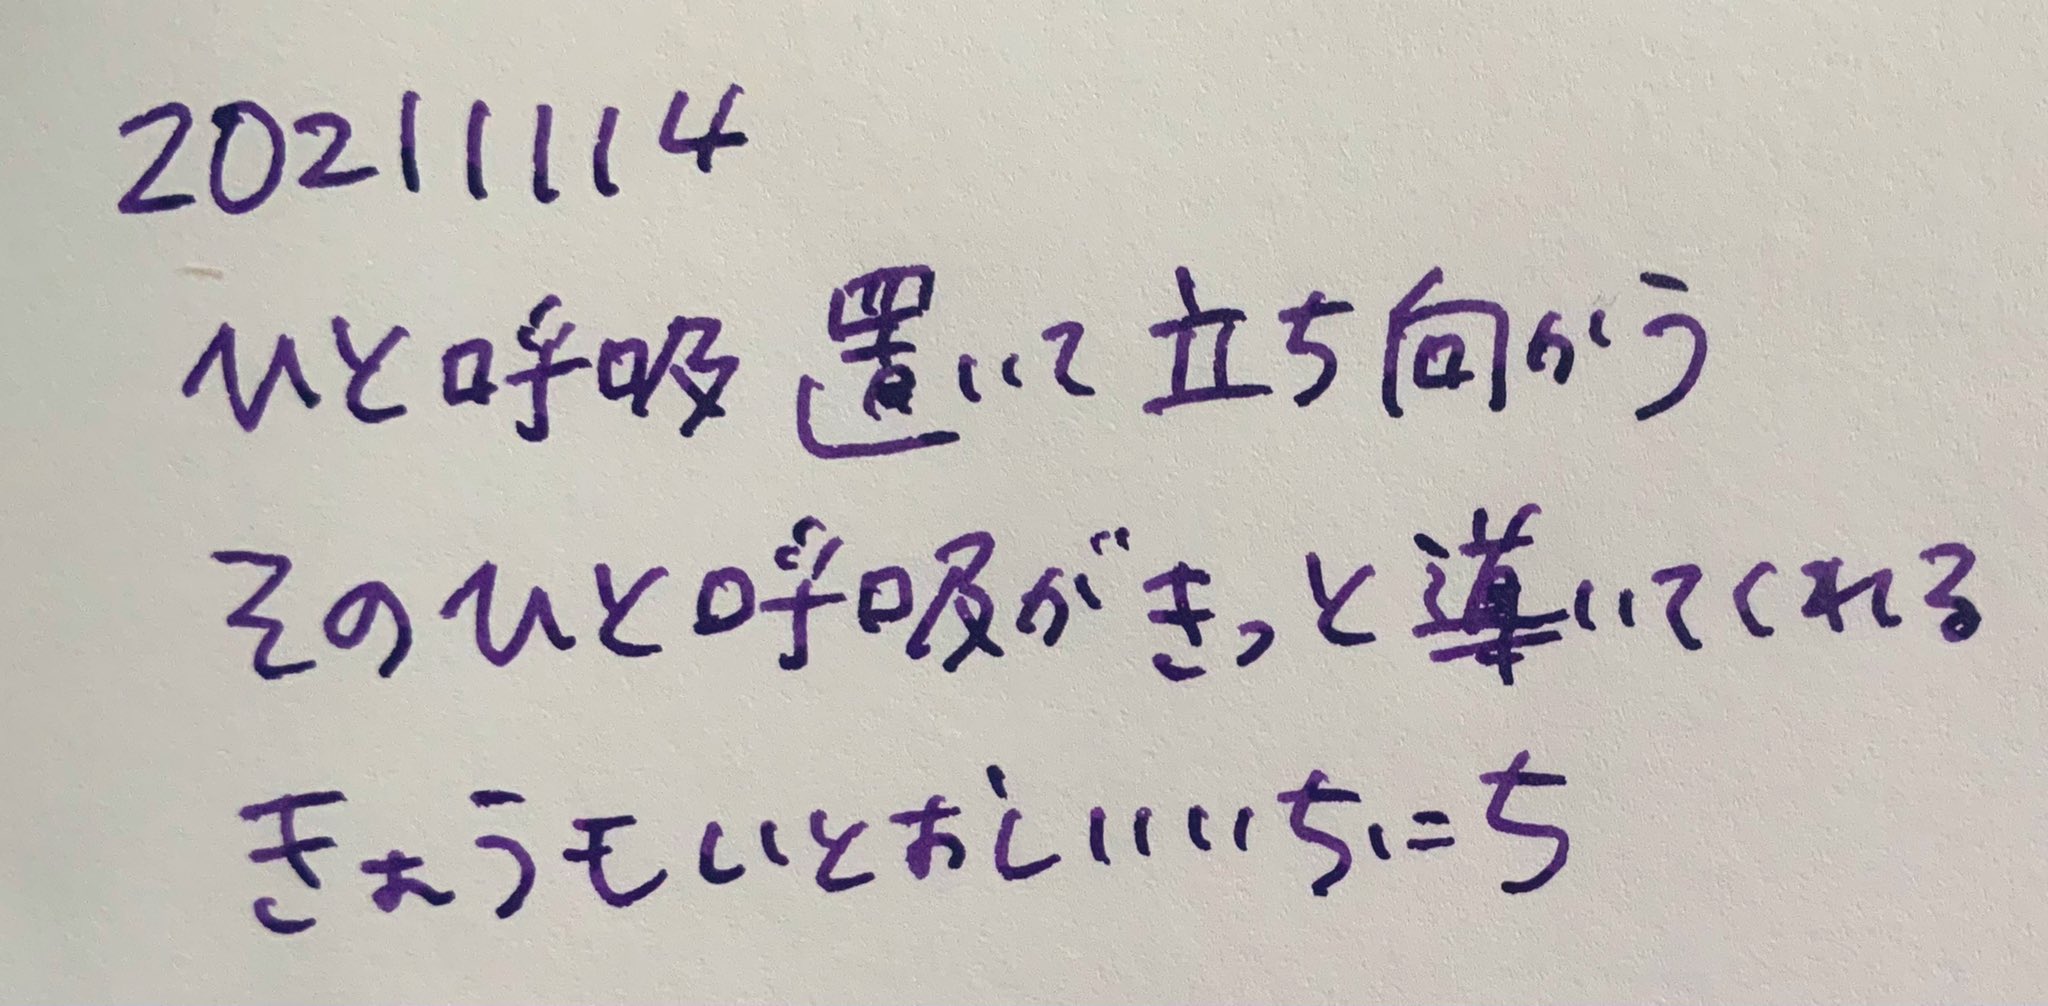 20211114
ひと呼吸置いて立ち向かう
そのひと呼吸がきっと導いてくれる
きょうもいとおしいいちにち